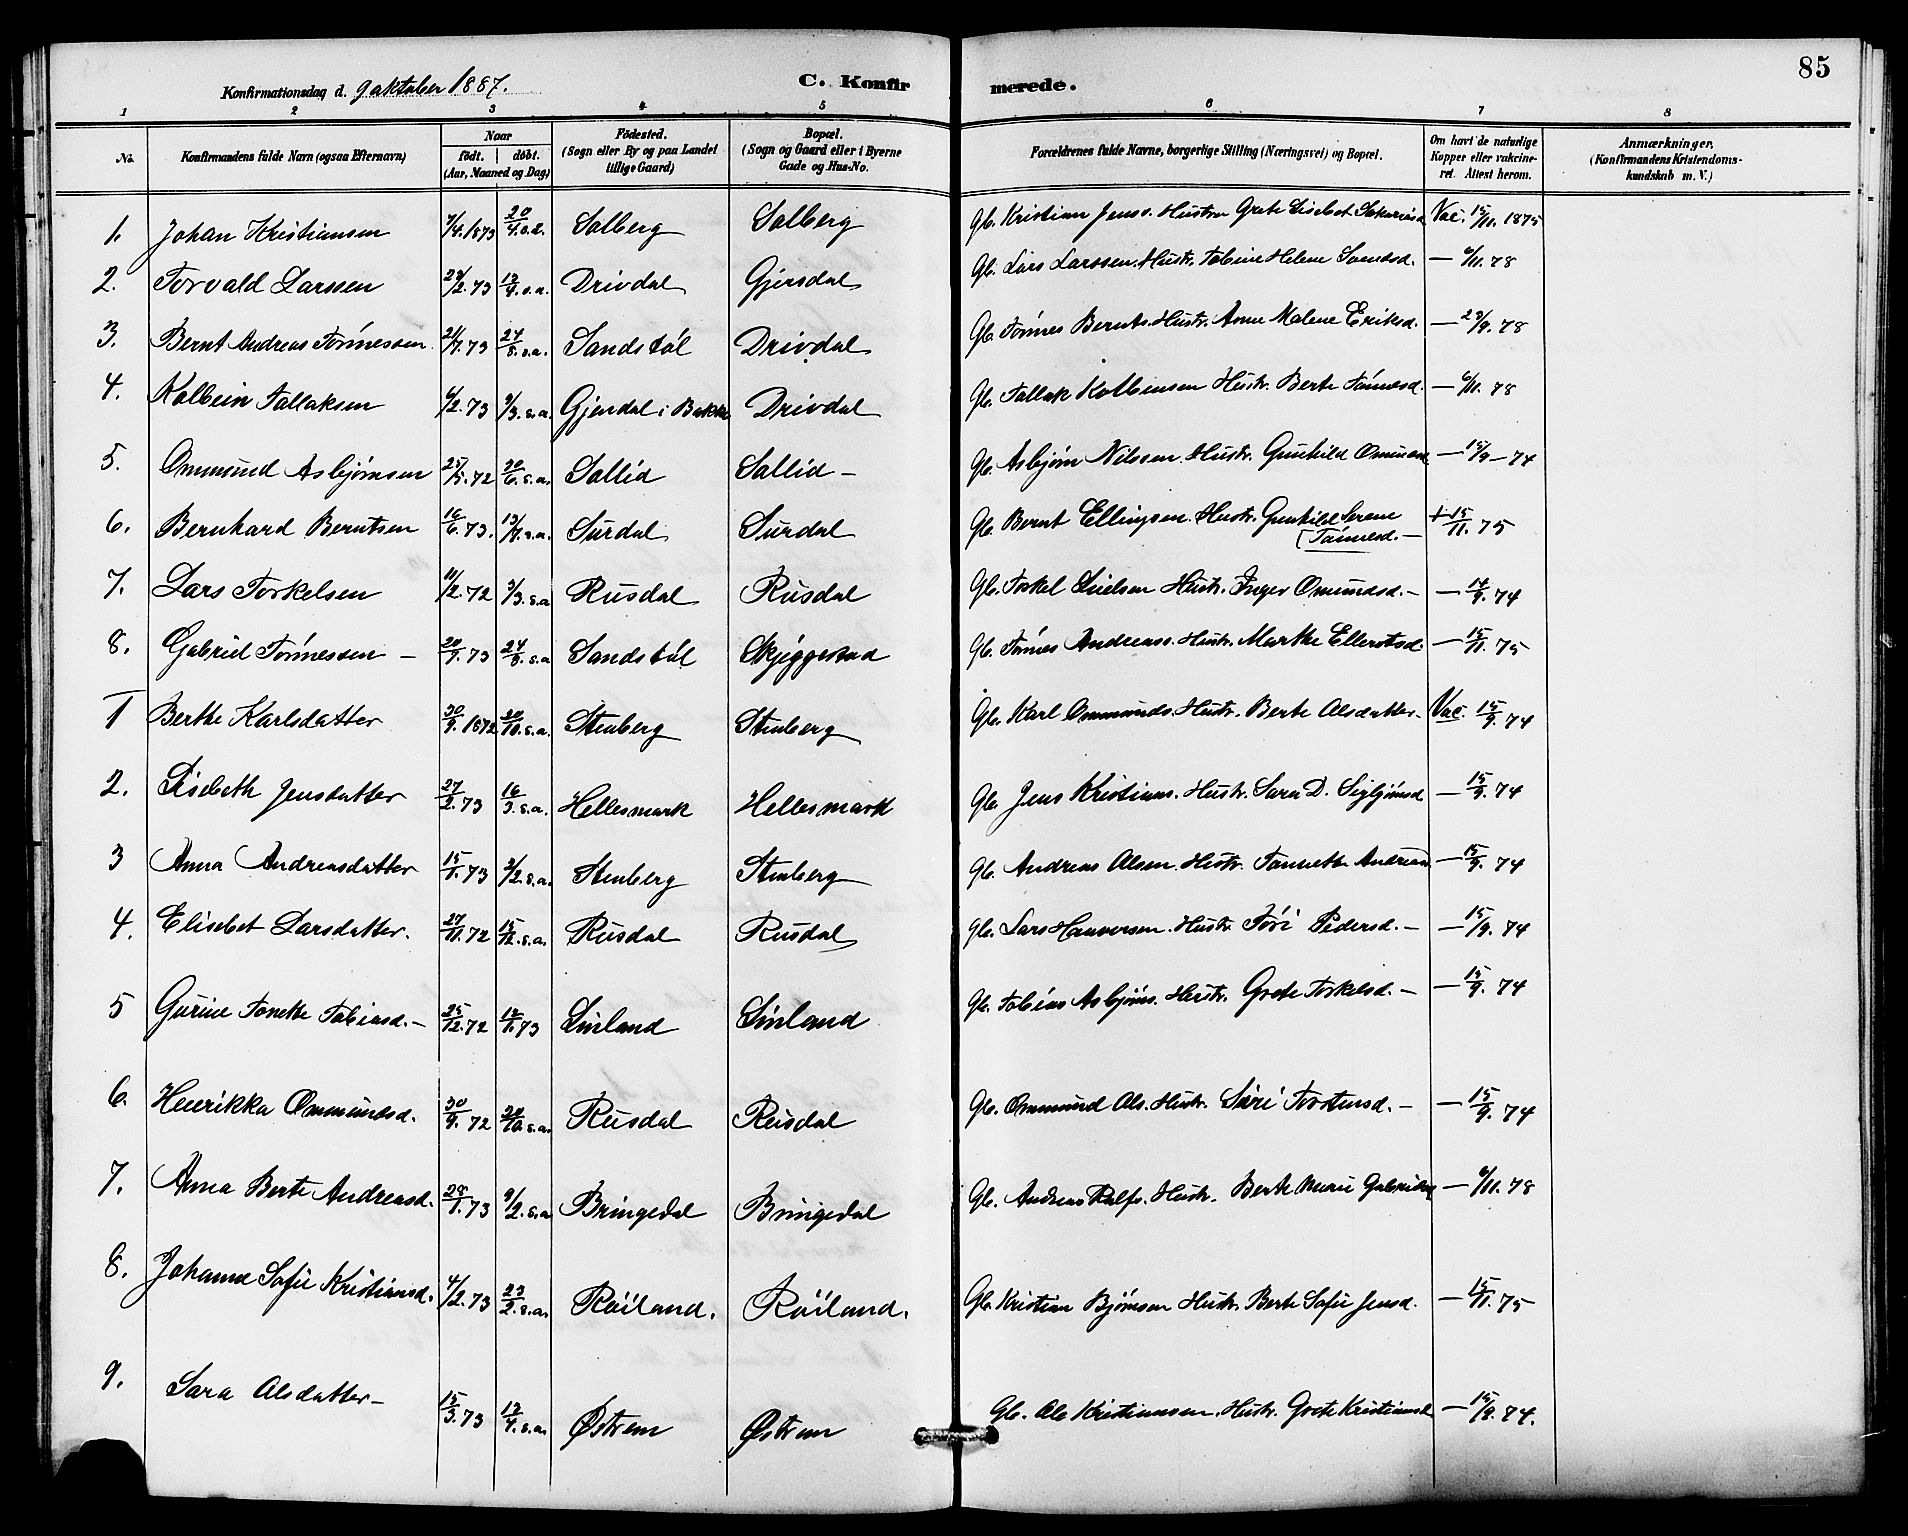 85
Konfirmationsdag d. 9 oktober 1887. C. Konfirmerede.
1 2 3 4 5 6 7 8
No. Konfirmandens fulde Navn (ogsaa Efternavn) Naar født. døbt. (Aar, Maaned og Dag) Födested. (Sogn eller By og paa Landet tillige Gaard) Bopæl. (Sogn og Gaard eller i Byerne Gade og Hus-No. Forældrenes fulde Navne, borgerlige Stilling (Næringsvei) og Bopæl. Om havt de naturlige Kopper eller vakcineret. Attest herom. Anmærkninger, (Konfirmandens Kristendomskundskab m. V.)
1. Johan Kristiansen 7/4.1873 20/4.s.a. Solberg Solberg Gb. Kristian Jens. Hustru Grete Liselet Vac. 15/11. 1875
2. Torvald Larssen 23/2.73 13/4.s.a. Drivdal Gjersdal Gb. Lars Larssen. Hustr. Tobine Helene — 6/11.78
3. Bernt Andreas Tønnessen 21/7.73 24/8.s.a. Sandstøl Drivdal Gb. Tønnes Bernts. Hustr. Anne Malene Eriksd. — 23/9.78
4. Kolbein Tallaksen 6/2.73 9/3.s.a. Gjendal i Bakke Drivdal Gb. Tallak Kolbensen Hustr. Berte Tønnesd. — 6/11.78
5. Ommund Asbjørnsen 25/5.72 30/6.s.a. Sollid Sollid — Gb. Asbjørn Nilssen. Hustr. Gunhild — 15/9 — 74
6. Bernhard Berntsen 16/6.73. 13/7.s.a. Surdal Surdal Gb. Bernt Ellingsen. Hustr. Gunhild Serene (Tønnesd. — + 15/11.75
7. Lars Torkelsen 11/2.72 3/3.s.a Rusdal Rusdal Gb. Torkel Hustr. Inger Omundsd. — — 14/9.74
8. Gabriel Tønnessen — 20/7.73 24/8.s.a Sandstøl Skjeggestad Gb. Tønnes Andreass. Hustr. Marthe — 15/11.75
1 Berthe Karlsdatter 30/9.1872 20/10.s.a. Stenberg Stenberg Gb. Karl Ommunds. Hustr. Berte Olsdatter. Vac. 15/9.74
2. Lisebeth Jensdatter 27/2.73 16/3.s.a. Hellesmark Hellesmark Gb. Jens Kristians. Hustr. Sara D. Sigbjørnsd — 15/9.74
3 Anna Andreasdatter 15/1.73 2/2.s.a. Stenberg Stenberg Gb. Andreas Olsen. Hustr. — 15/9.74
4. Elisebet Larsdatter. 27/11.72 15/12.s.a. Rusdal Rusdal Gb. Lars Hustr. Tøri Pedersd. — — 15/9.74
5 Gurine Tonette Tobiasd. — 25/12.72 12/1.73 Linland Linland Gb. Tobias Asbjørns. Hustr. Grete Torkelsd. — — 15/9.74
6. Henrikka Ommundsd. 30/9.72 20/10.s.a. Rusdal Rusdal Gb. Ommund Ols. Hustr. Siri Torstensd. — — 15/9.74
7. Anna Berte Andreasd. 28/1.73 9/2.s.a Bringedal Bringedal Gb. Andreas Hustr. Berte Marie — 6/11.78
8. Johanne Sofie Kristiansd. 4/2.73 23/2.s.a. Röiland. Röiland. Gb. Kristian Bjørnsen Hustr. Berte Sofie Jensd. — 15/11.75
9. Sara Olsdatter — 15/3.73 13/4.s.a. Østrem Østrem Gb. Ole Kristiansen. Hustr. Grete Kristiansd — 15/9.74.